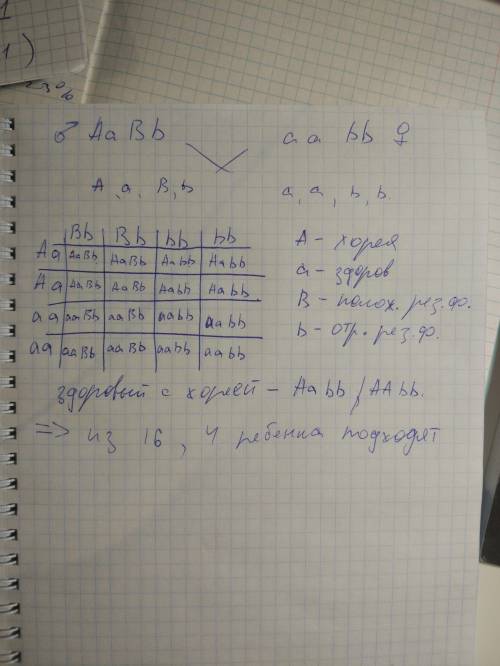 1
1)
♂ Aa Bb aa bb ♀
A, a, B, b a, a, b, b.
Bb Bb bb bb
Aa AaBb AaBb Aabb Aabb
Aa AaBb AaBb Aabb Aabb
aa aaBb aaBb aabb aabb
aa aaBb aaBb aabb aabb
A - хорея
a - здоров
B - полож. рез. фо.
b - отр. рез. фо.
здоровый с хореей - Aabb/AAbb.
=> из 16, 4 ребенка подходят